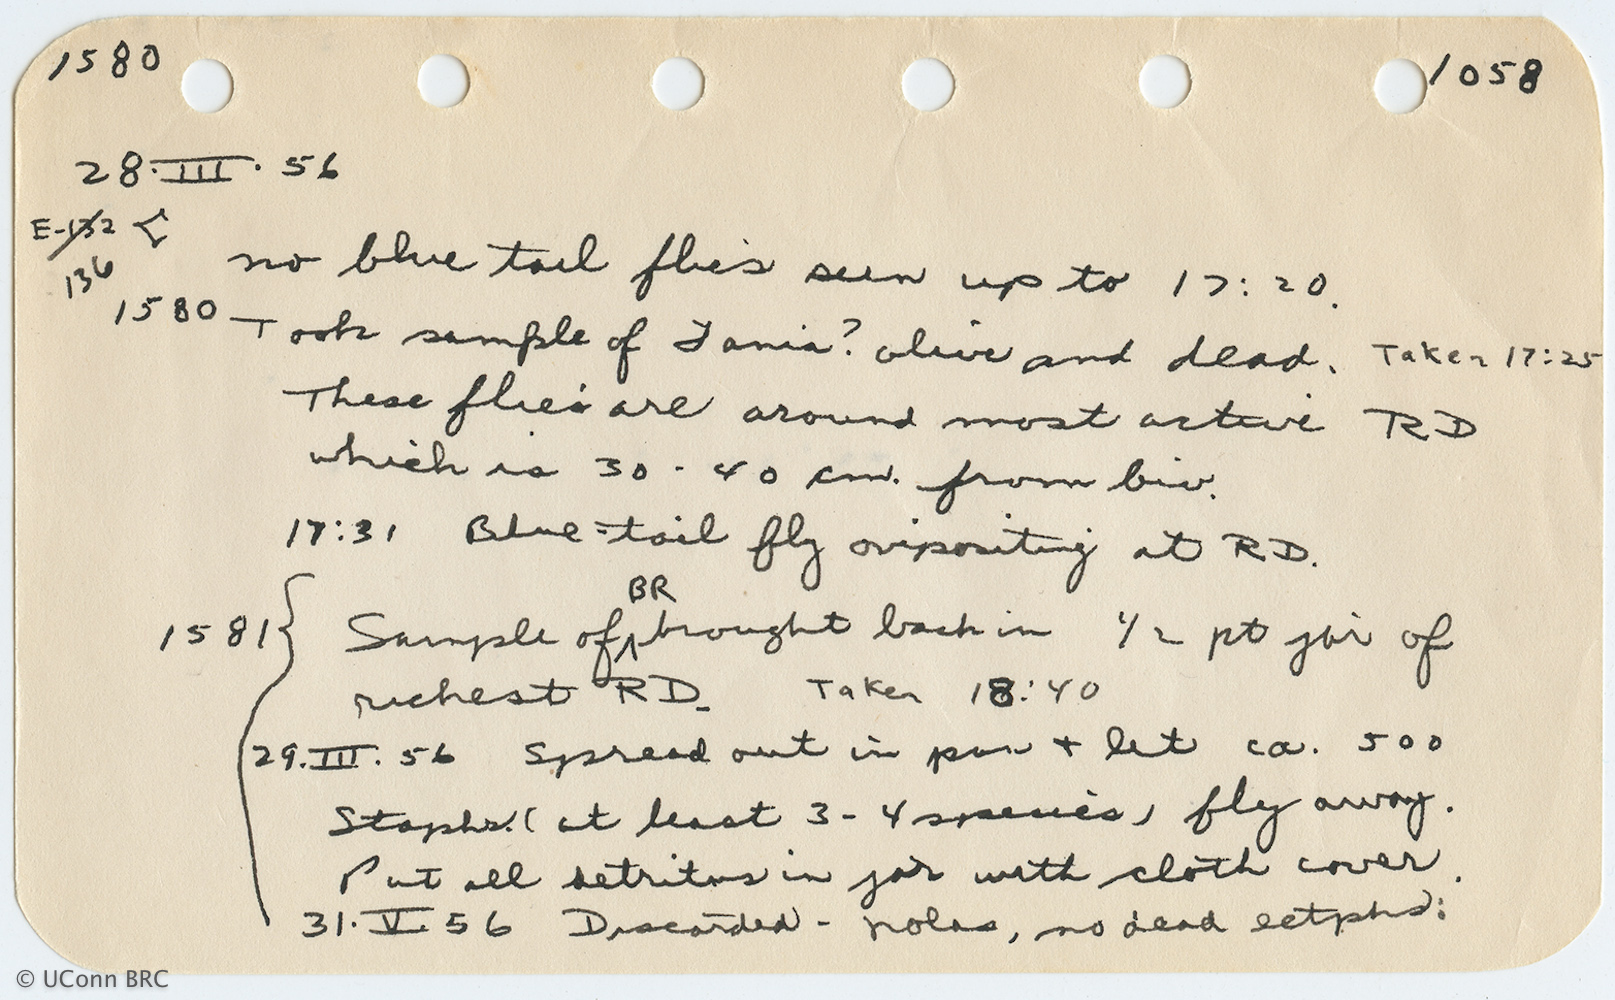 1580 1058
28.III.56
E-132
136
no blue tail flies seen up to 17:20.
1580 Took sample of Fania? alive and dead. Taken 17:25
These flies are around most active RD
which is 30-40 cm. from biv.
17:31 Blue-tail fly ovipositing at RD.
BR
1581 Sample of brought back in 1/2 pt jar of
richest RD. Taken 18:40
29.III.56 Spread out in pan + let ca. 500
Staphs. (at least 3-4 species) fly away.
Put all detritus in jar with cloth cover.
31.V.56 Discarded - no dead
© UConn BRC